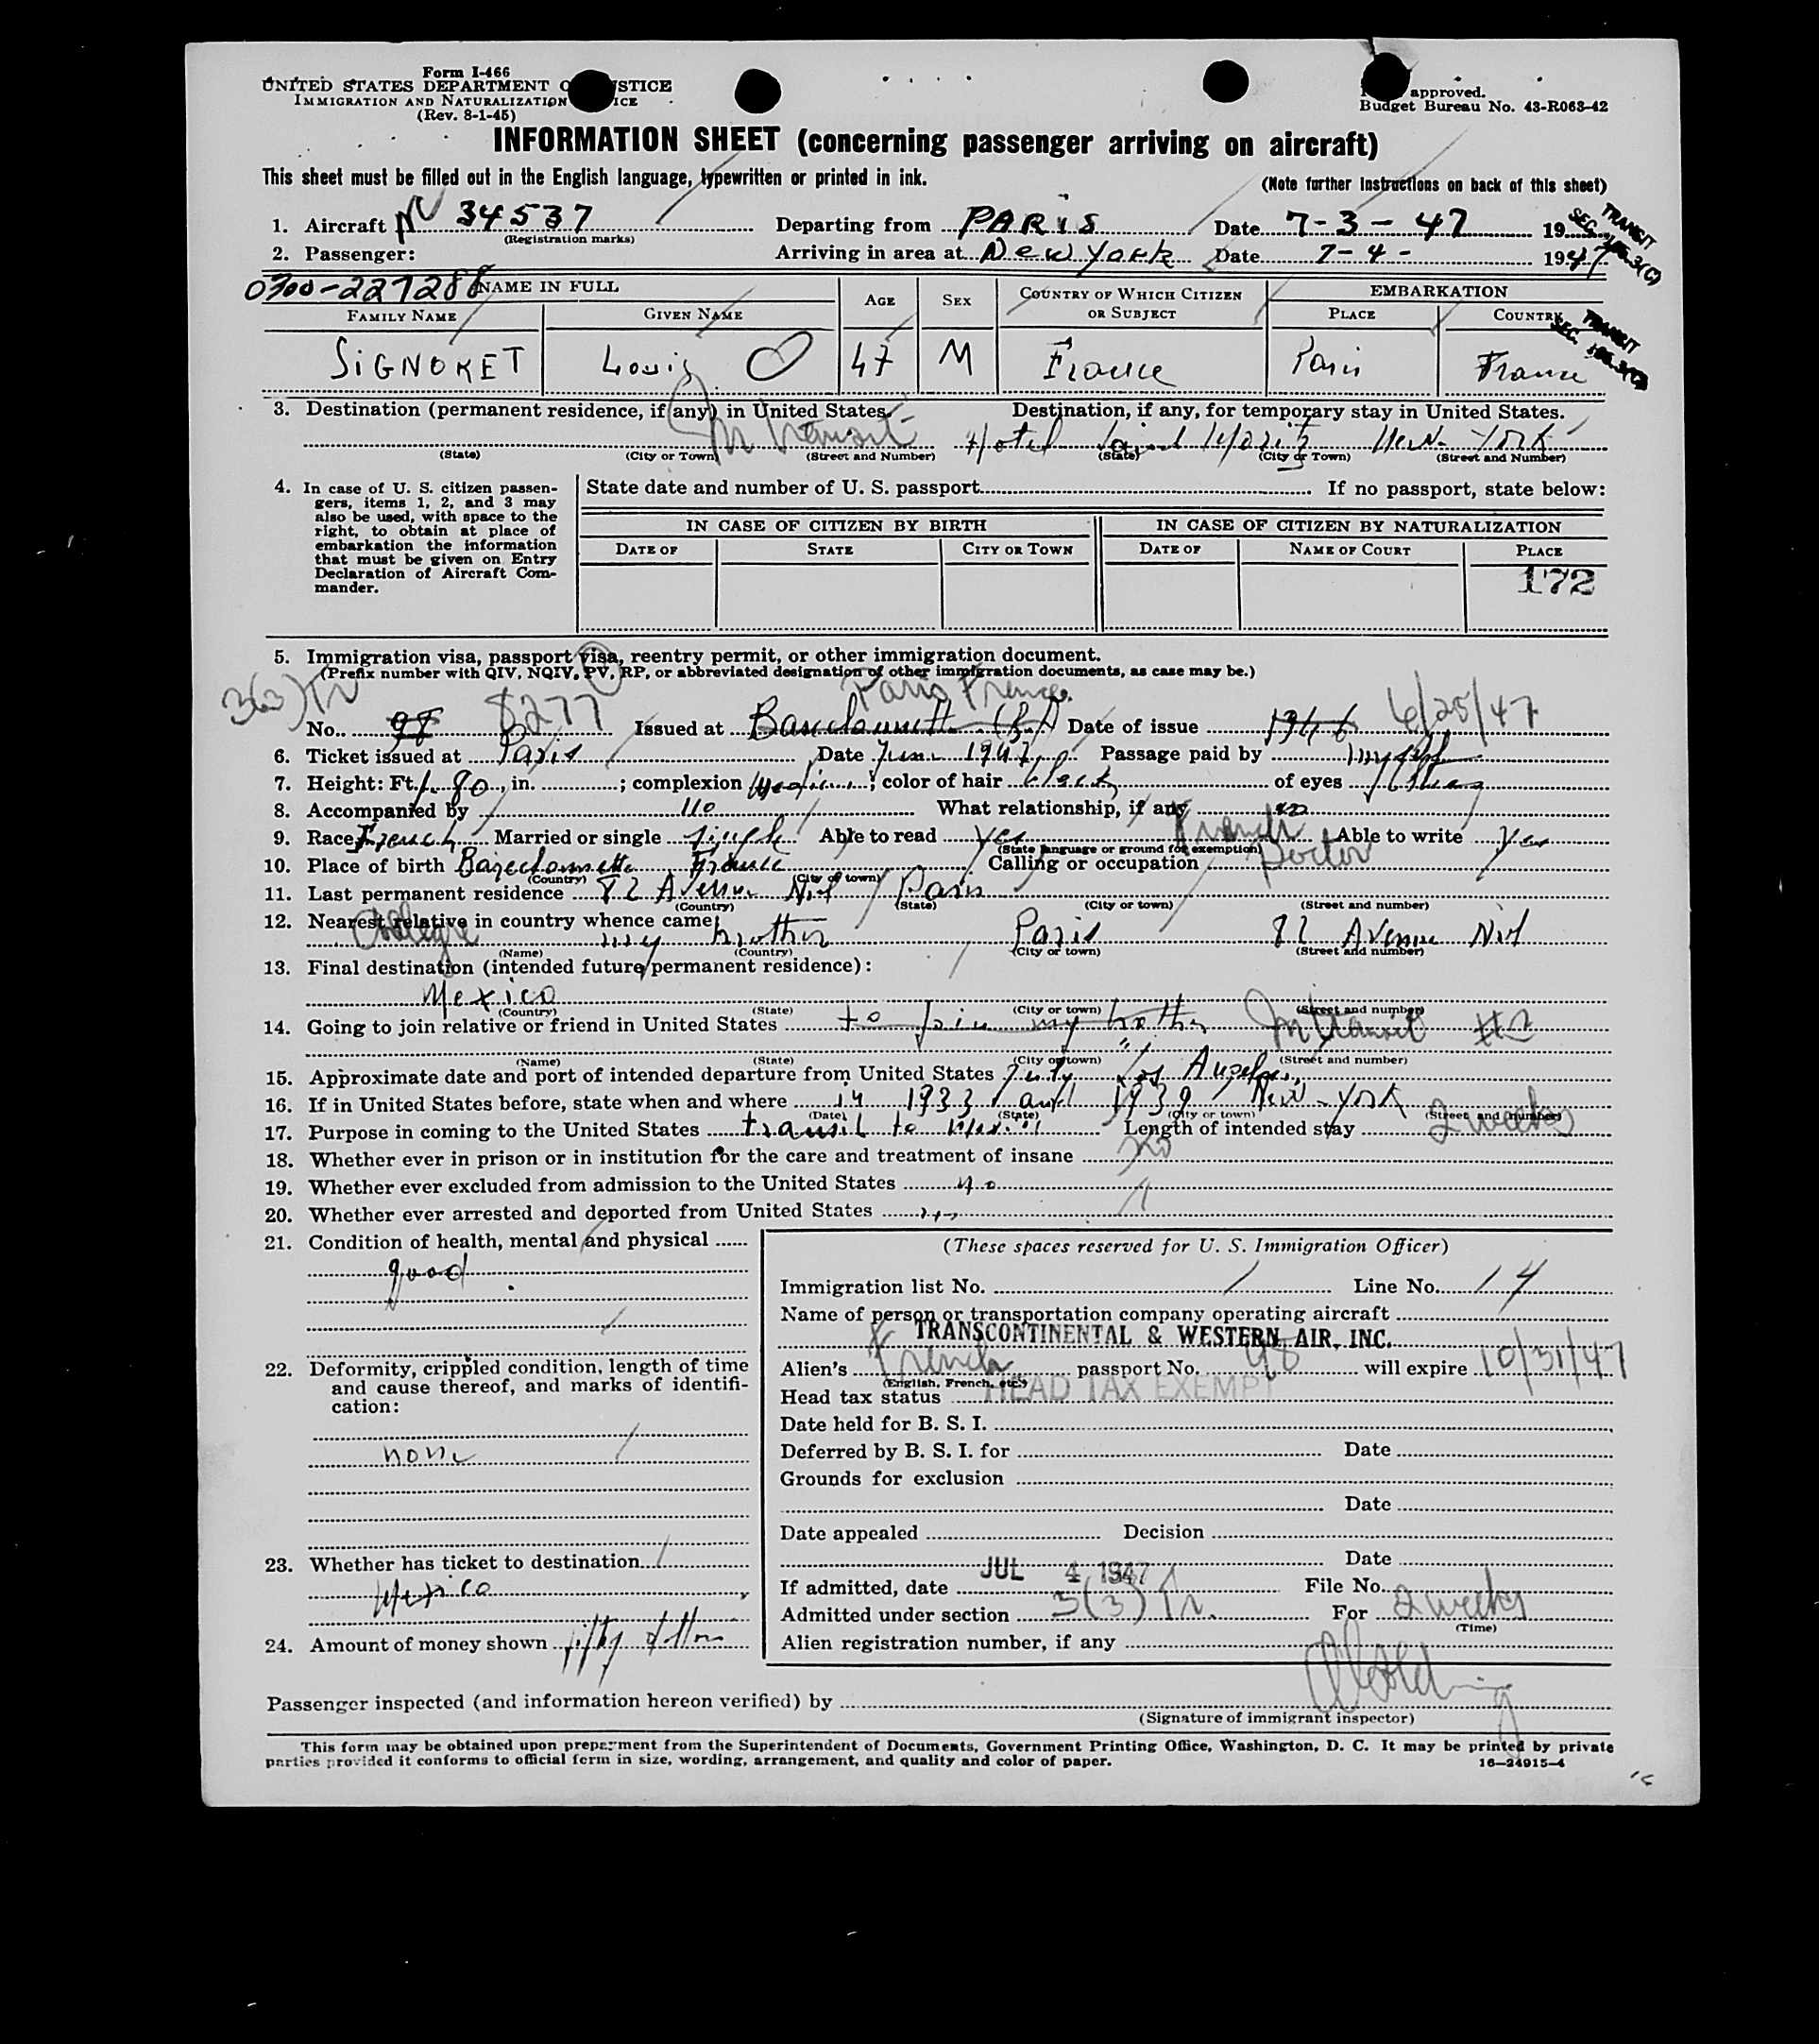 Form I-466
UNITED STATES DEPARTMENT O STICE
IMMIGRATION AND NATURALIZATION ICE
(Rev. 8-1-45)
approved.
Budget Bureau No. 43-R063-42
INFORMATION SHEET (concerning passenger arriving on aircraft)
This sheet must be filled out in the English language, typewritten or printed in ink.
(Note further instructions on back of this sheet)
1. Aircraft 34537 Departing from PARIS Date 7-3-47 19
(Registration marks)
TRANSIT
2. Passenger: Arriving in area at New York Date 7-4- 1947
0300-227288 NAME IN FULL AGE SEX COUNTRY OF WHICH CITIZEN OR SUBJECT EMBARKATION
FAMILY NAME GIVEN NAME PLACE COUNTRY
TRANSIT
SIGNORET Louis 47 M France Paris France
3. Destination (permanent residence, if any) in United States. Destination, if any, for temporary stay in United States.
In transit Hotel Saint Moritz New York
(State) (City or Town) (Street and Number) (State) (City or Town) (Street and Number)
4. In case of U. S. citizen passengers, items 1, 2, and 3 may also be used, with space to the right, to obtain at place of embarkation the information that must be given on Entry Declaration of Aircraft Commander.
State date and number of U. S. passport If no passport, state below:
IN CASE OF CITIZEN BY BIRTH IN CASE OF CITIZEN BY NATURALIZATION
DATE OF STATE CITY OR TOWN DATE OF NAME OF COURT PLACE
172
5. Immigration visa, passport visa, reentry permit, or other immigration document.
(Prefix number with QIV, NQIV, PV, RP, or abbreviated designation of other immigration documents, as case may be.)
3(3) Tr Paris France
No. 98 8277 Issued at Date of issue 1946 6/25/47
6. Ticket issued at Paris Date June 1947 Passage paid by myself
7. Height: Ft. 1.80 in. ; complexion ; color of hair black of eyes
8. Accompanied by no What relationship, if any no
9. Race French Married or single single Able to read yes French Able to write yes
(State language or ground for exemption)
10. Place of birth France Calling or occupation Doctor
(Country) (City or town)
11. Last permanent residence 82 Avenue Niel Paris
(Country) (State) (City or town) (Street and number)
12. Nearest relative in country whence came
my mother Paris 82 Avenue Niel
(Name) (Country) (City or town) (Street and number)
13. Final destination (intended future permanent residence):
Mexico
(Country) (State) (City or town) (Street and number)
14. Going to join relative or friend in United States to join my brother In transit
(Name) (State) (City or town) (Street and number)
15. Approximate date and port of intended departure from United States July Los Angeles
16. If in United States before, state when and where in 1933 and 1939 New-York
(Date) (State) (City or town) (Street and number)
17. Purpose in coming to the United States transit to Mexico Length of intended stay 2 weeks
18. Whether ever in prison or in institution for the care and treatment of insane no
19. Whether ever excluded from admission to the United States no
20. Whether ever arrested and deported from United States no
21. Condition of health, mental and physical
good
22. Deformity, crippled condition, length of time and cause thereof, and marks of identification:
none
23. Whether has ticket to destination
Mexico
24. Amount of money shown fifty dollars
(These spaces reserved for U. S. Immigration Officer)
Immigration list No. 1 Line No. 14
Name of person or transportation company operating aircraft
TRANSCONTINENTAL & WESTERN AIR, INC.
Alien's French passport No. 98 will expire 10/31/47
(English, French, etc.)
Head tax status HEAD TAX EXEMPT
Date held for B. S. I.
Deferred by B. S. I. for Date
Grounds for exclusion
Date
Date appealed Decision
Date
If admitted, date JUL 4 1947 File No.
Admitted under section 3(3) Tr. For 2 weeks
(Time)
Alien registration number, if any
Passenger inspected (and information hereon verified) by
(Signature of immigrant inspector)
This form may be obtained upon prepayment from the Superintendent of Documents, Government Printing Office, Washington, D. C. It may be printed by private
parties provided it conforms to official form in size, wording, arrangement, and quality and color of paper. 16—24915-4